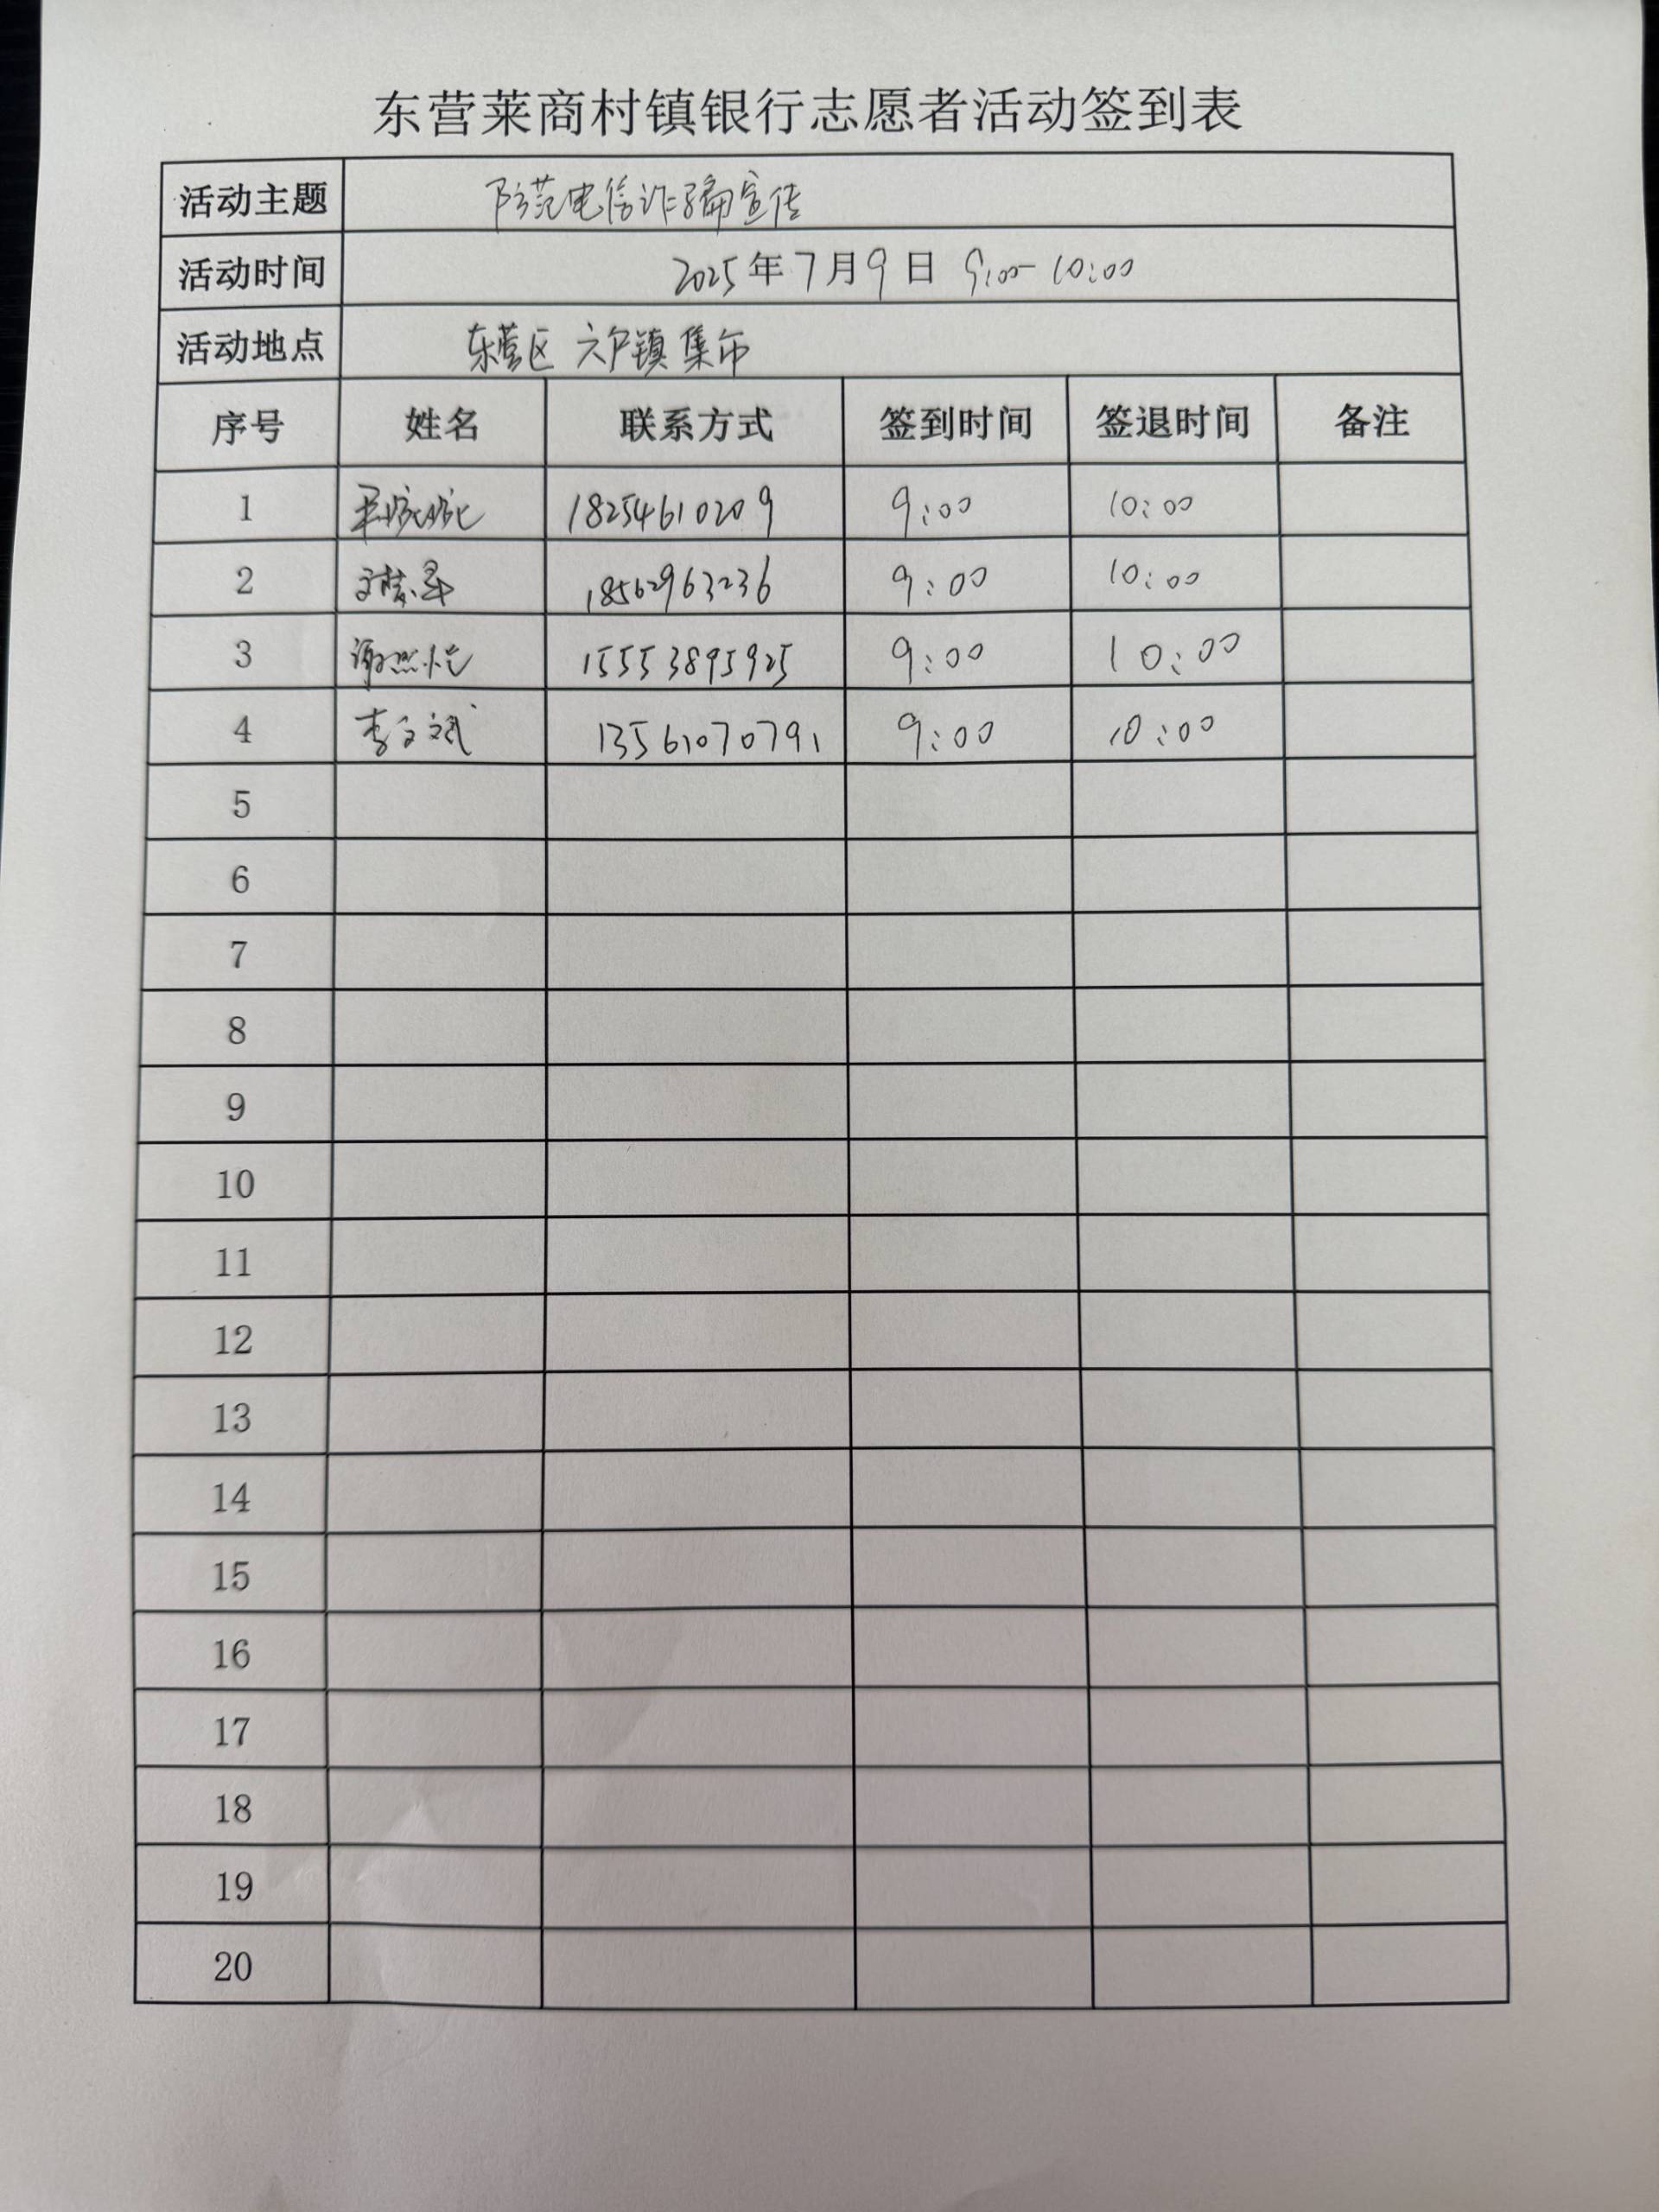 东营莱商村镇银行志愿者活动签到表
活动主题 防范电信诈骗宣传
活动时间 2025年7月9日 9:00-10:00
活动地点 东营区 六户镇 集市
序号 姓名 联系方式 签到时间 签退时间 备注
1 18254610209 9:00 10:00
2 18562963236 9:00 10:00
3 15553895925 9:00 10:00
4 李文斌 13561070791 9:00 10:00
5
6
7
8
9
10
11
12
13
14
15
16
17
18
19
20